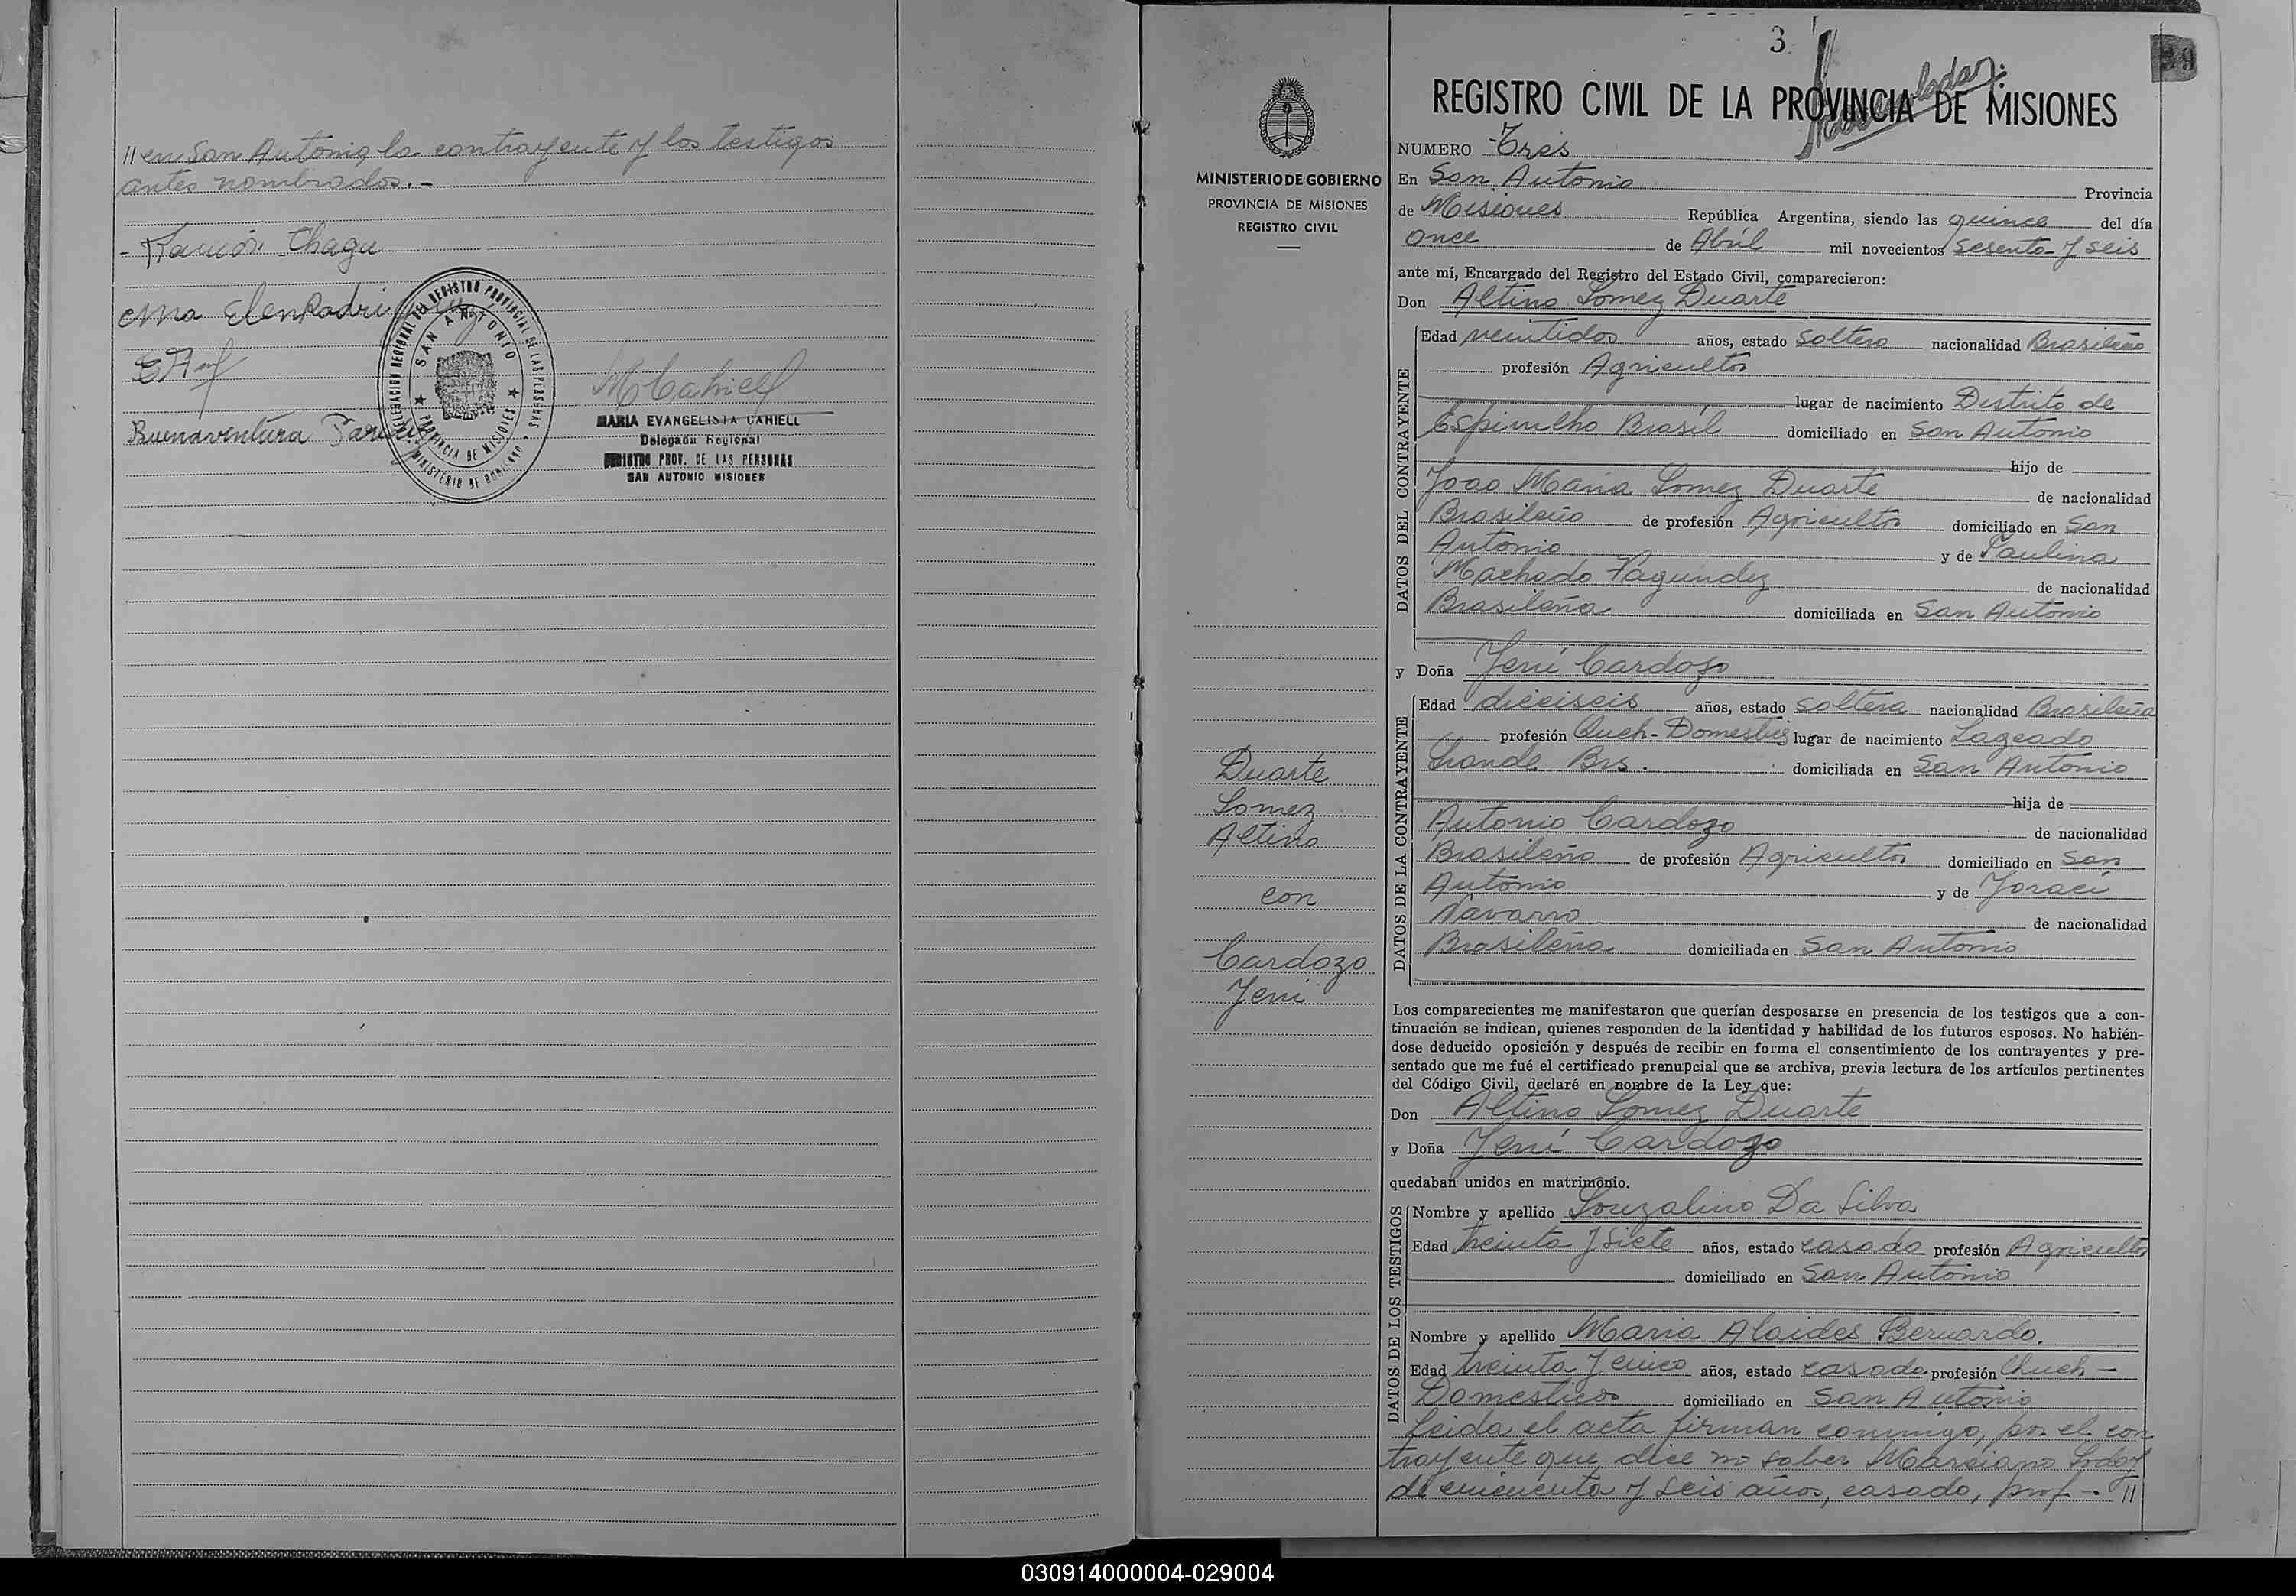 // en San Antonio, la contrayente y los testigos
antes nombrados.-
- Ramón Chagu
Ema Elen Rodri
Buenaventura
DELEGACION REGIONAL DEL REGISTRO PROVINCIAL DE LAS PERSONAS
SAN ANTONIO
★ PROVINCIA DE MISIONES ★
MINISTERIO DE GOBIERNO
MCahiell
MARIA EVANGELISTA CAHIELL
Delegada Regional
REGISTRO PROV. DE LAS PERSONAS
SAN ANTONIO MISIONES
3
39
REGISTRO CIVIL DE LA PROVINCIA DE MISIONES
MINISTERIO DE GOBIERNO
PROVINCIA DE MISIONES
REGISTRO CIVIL
Duarte
Gomez
Altino
con
Cardozo
Jeni
NUMERO Tres
En San Antonio Provincia
de Misiones República Argentina, siendo las quince del día
once de Abril mil novecientos sesenta y seis
ante mí, Encargado del Registro del Estado Civil, comparecieron:
Don Altino Gomez Duarte
DATOS DEL CONTRAYENTE
Edad veintidos años, estado soltero nacionalidad Brasileño
profesión Agricultor
lugar de nacimiento Distrito de
Espinilho Brasil domiciliado en San Antonio
hijo de
Joao Maria Gomez Duarte de nacionalidad
Brasileño de profesión Agricultor domiciliado en San
Antonio y de Paulina
Machado Fagundez de nacionalidad
Brasileña domiciliada en San Antonio
y Doña Jeni Cardozo
DATOS DE LA CONTRAYENTE
Edad dieciseis años, estado soltera nacionalidad Brasileña
profesión Queh-Domesticos lugar de nacimiento Lageado
Grande Brs. domiciliada en San Antonio
hija de
Antonio Cardozo de nacionalidad
Brasileño de profesión Agricultor domiciliado en San
Antonio y de Joraci
Navarro de nacionalidad
Brasileña domiciliada en San Antonio
Los comparecientes me manifestaron que querían desposarse en presencia de los testigos que a con-
tinuación se indican, quienes responden de la identidad y habilidad de los futuros esposos. No habién-
dose deducido oposición y después de recibir en forma el consentimiento de los contrayentes y pre-
sentado que me fué el certificado prenupcial que se archiva, previa lectura de los artículos pertinentes
del Código Civil, declaré en nombre de la Ley que:
Don Altino Gomez Duarte
y Doña Jení Cardozo
quedaban unidos en matrimonio.
DATOS DE LOS TESTIGOS
Nombre y apellido Gouzalino Da Silva
Edad treinta y siete años, estado casado profesión Agricultor
domiciliado en San Antonio
Nombre y apellido Maria Alaides Bernardo.
Edad treinta y cinco años, estado casada profesión Queh-
Domesticos domiciliado en San Antonio
Leida el acta firman conmigo, por el con
trayente que dice no saber Marciano Godoy
de cincuenta y seis años, casado, prof -. //
030914000004-029004